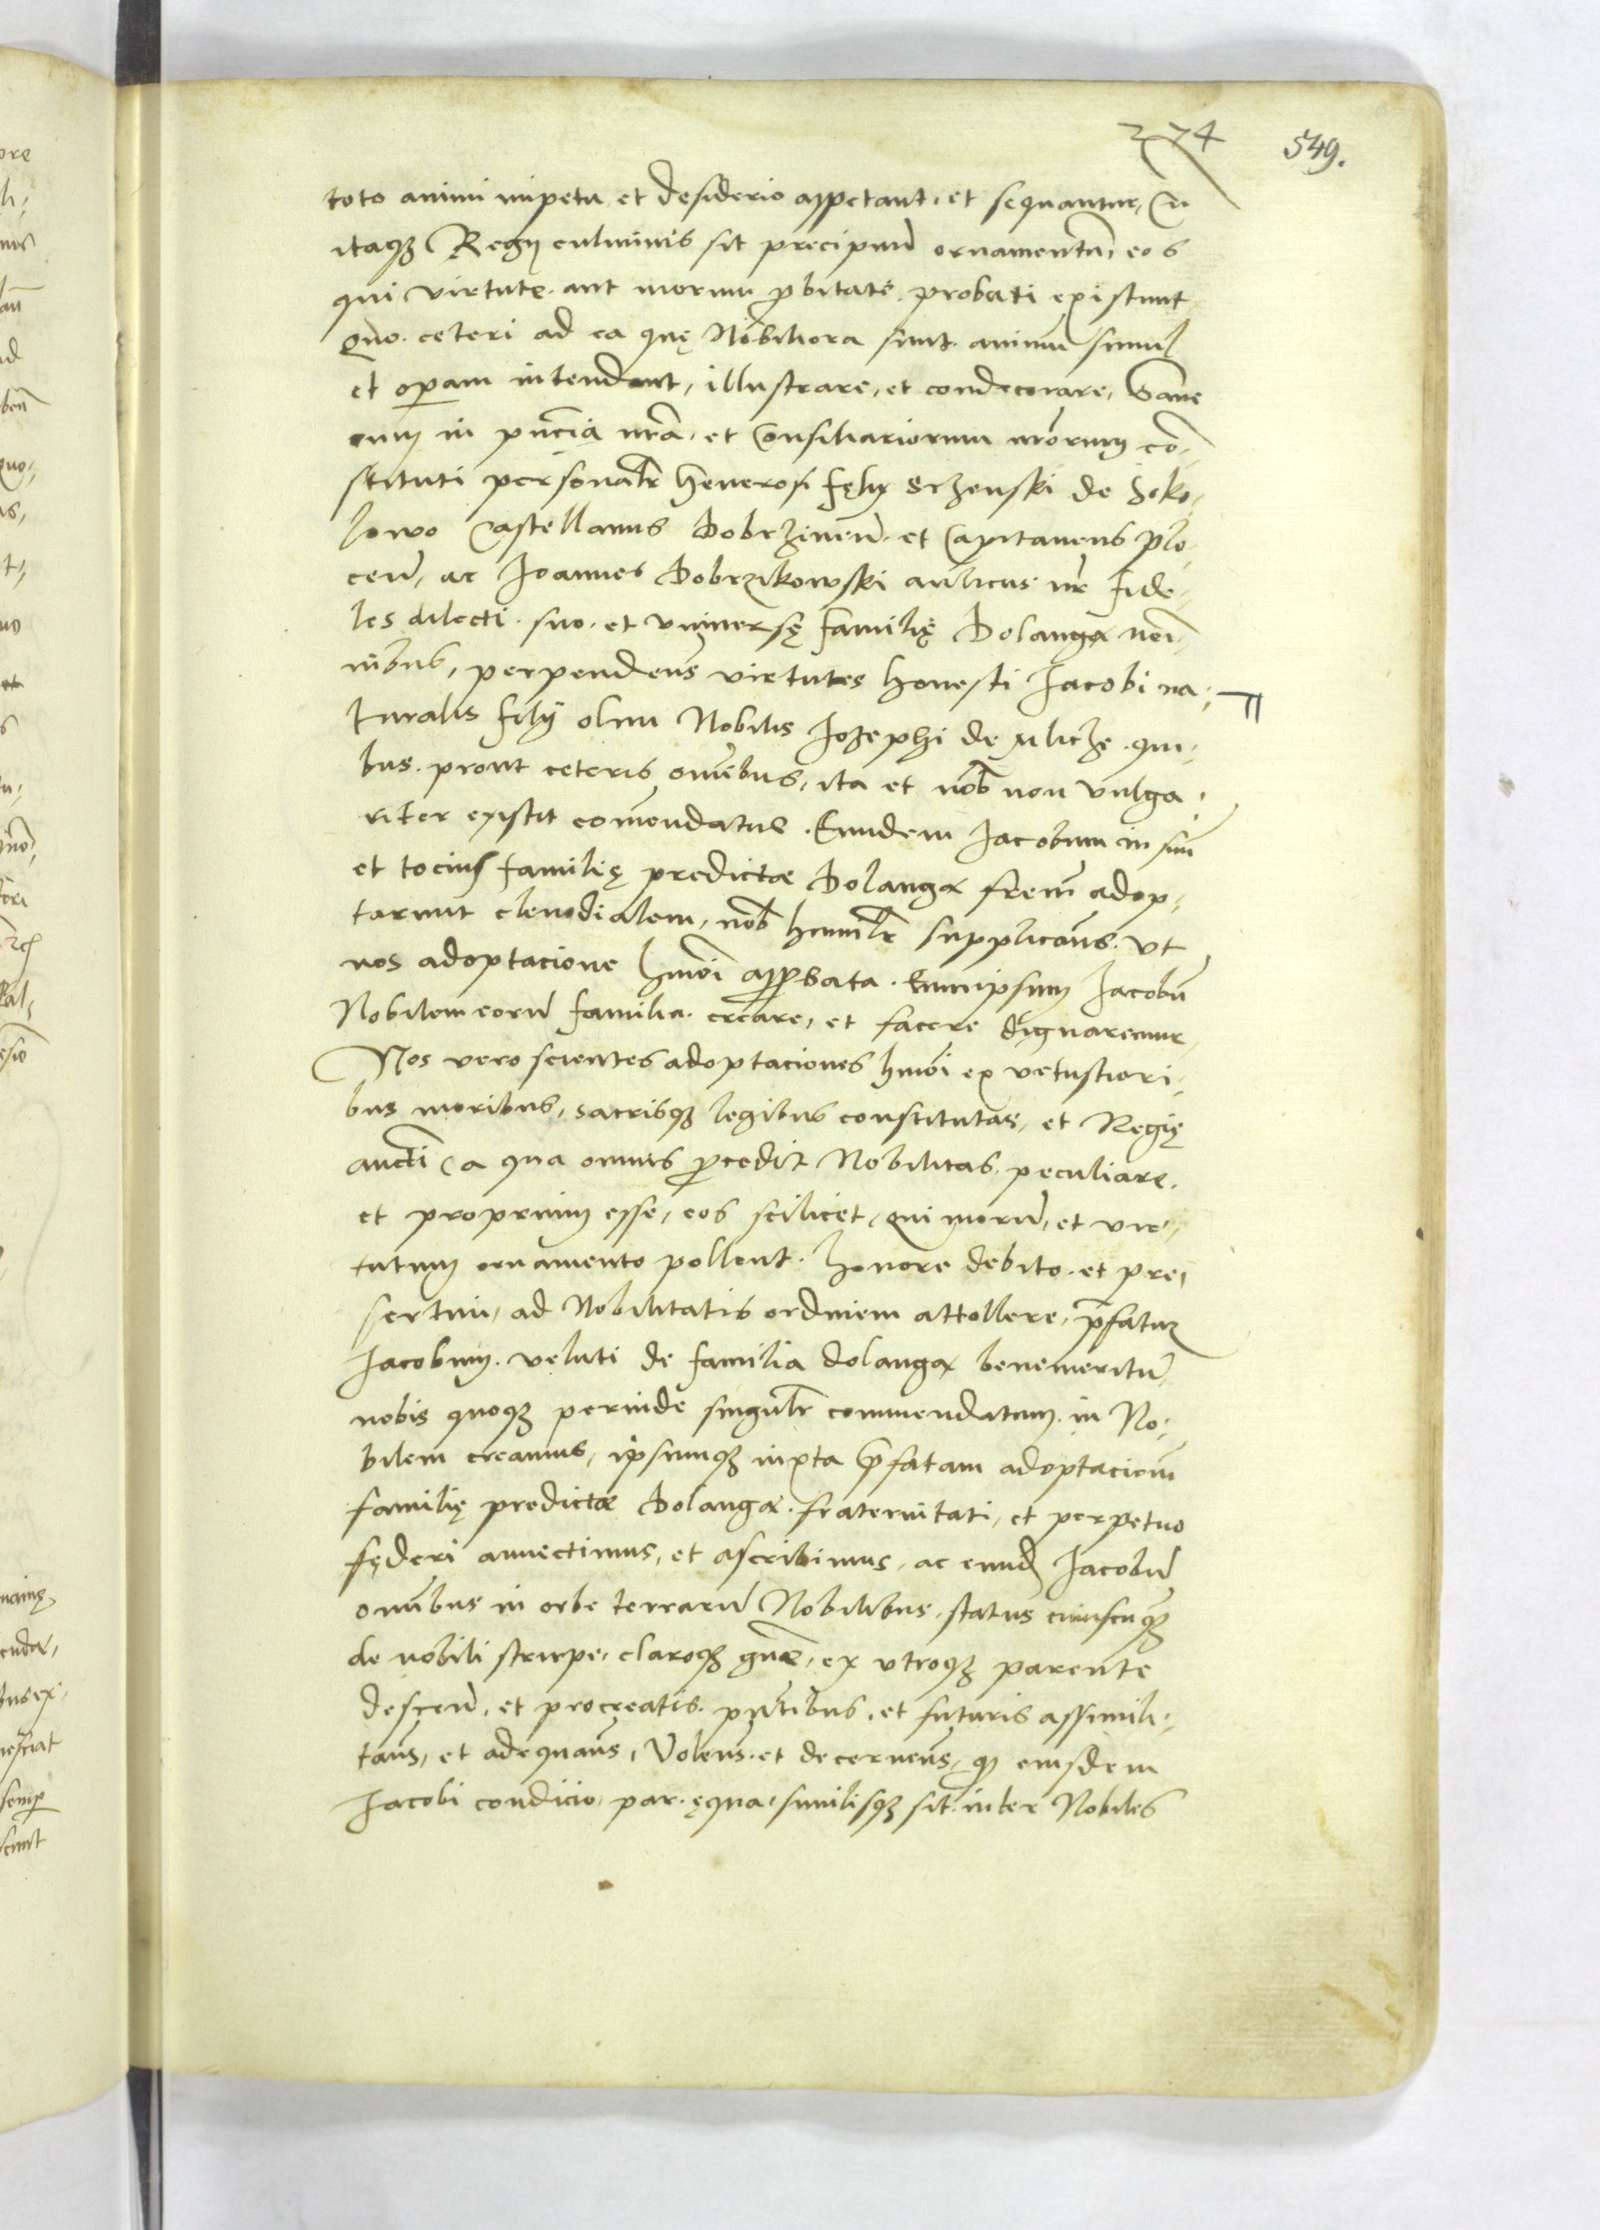 274
549.
toto animi impetu et desiderio appetant, et sequantur, Cū
itaq₃ Regij culminis sit precipuū ornamentū, eos
qui virtute aut morum ꝓbitate probati existunt
Quo ceteri ad ea quę Nobiliora sunt animū simul
et operam intendant, illustrare, et condecorare, Sane
cum in pn̄cia nr̄a, et Consiliariorum nr̄orum cō¬
stituti personalr̄ Generosi Fęlix Srzenski de Soko¬
lowo Castellanus Dobrzinen̄ et Capitaneus Plo¬
cen̄, ac Joannes Dobrzikowski aulicus nr̄ fide¬
les dilecti suo et vniuersę familię Dolanga noī¬
nibus, perpenden̄s virtutes honesti Jacobi na¬
turalis filij olim Nobilis Jozephi de quibus
bus prout ceteris om̄ibus, ita et nob̄ non vulga¬
riter existit com̄endatus. Eundem Jacobum in suū
et tocius familię predictæ Dolanga fr̄em adop¬
tarunt clenodialem, nob̄ humilr̄ supplican̄s vt
nos adoptacione hmōi approbata Eumipsum Jacobū
Nobilem eorū familia creare, et facere dignaremur
Nos vero scientes adoptaciones hmōi ex vetustiori¬
bus moribus, sacrisq₃ legibus constitutas, et Regię
auctī (a qua omnis ꝓcedit Nobilitas peculiare
et proprium esse, eos scilicet, qui morū, et vir¬
tutum ornamento pollent honore debito et pre¬
sertim, ad Nobilitatis ordinem attollere, p̄fatum
Jacobum veluti de familia dolanga benemeritū
nobis quoq₃ perinde singulr̄ commendatum in No¬
bilem creamus, ipsumq₃ iuxta p̄fatam adoptacion̄
familię predictæ Dolanga fraternitati, et perpetuo
fęderi annectimus, et ascribimus, ac eund Jacobū
om̄ibus in orbe terrarū Nobilibus, status cuiuscūq₃
de nobili stirpe, claroq₃ gn̄e, ex vtroq₃ parente
descen̄, et procreatis pn̄tibus, et futuris assimili¬
tan̄s, et adequan̄s, Volen̄s et decernen̄s, q₃ eiusdem
Jacobi condicio, par, ęqua, similisq₃ sit inter Nobiles